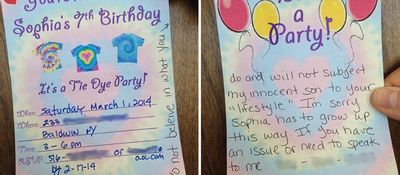 You're
Sophia's 7th Birthday
It's a Tie Dye Party!
When: Saturday March 1, 2014
Where: 233
Baldwin NY
Time: 3 - 6 pm
RSVP: 516- or @
aol.com
by 2-17-14
do not beleive in what you
a
Party!
do and will not subject
my innocent son to your
"lifestyle." I'm sorry
Sophia has to grow up
this way. If you have
an issue or need to speak
to me